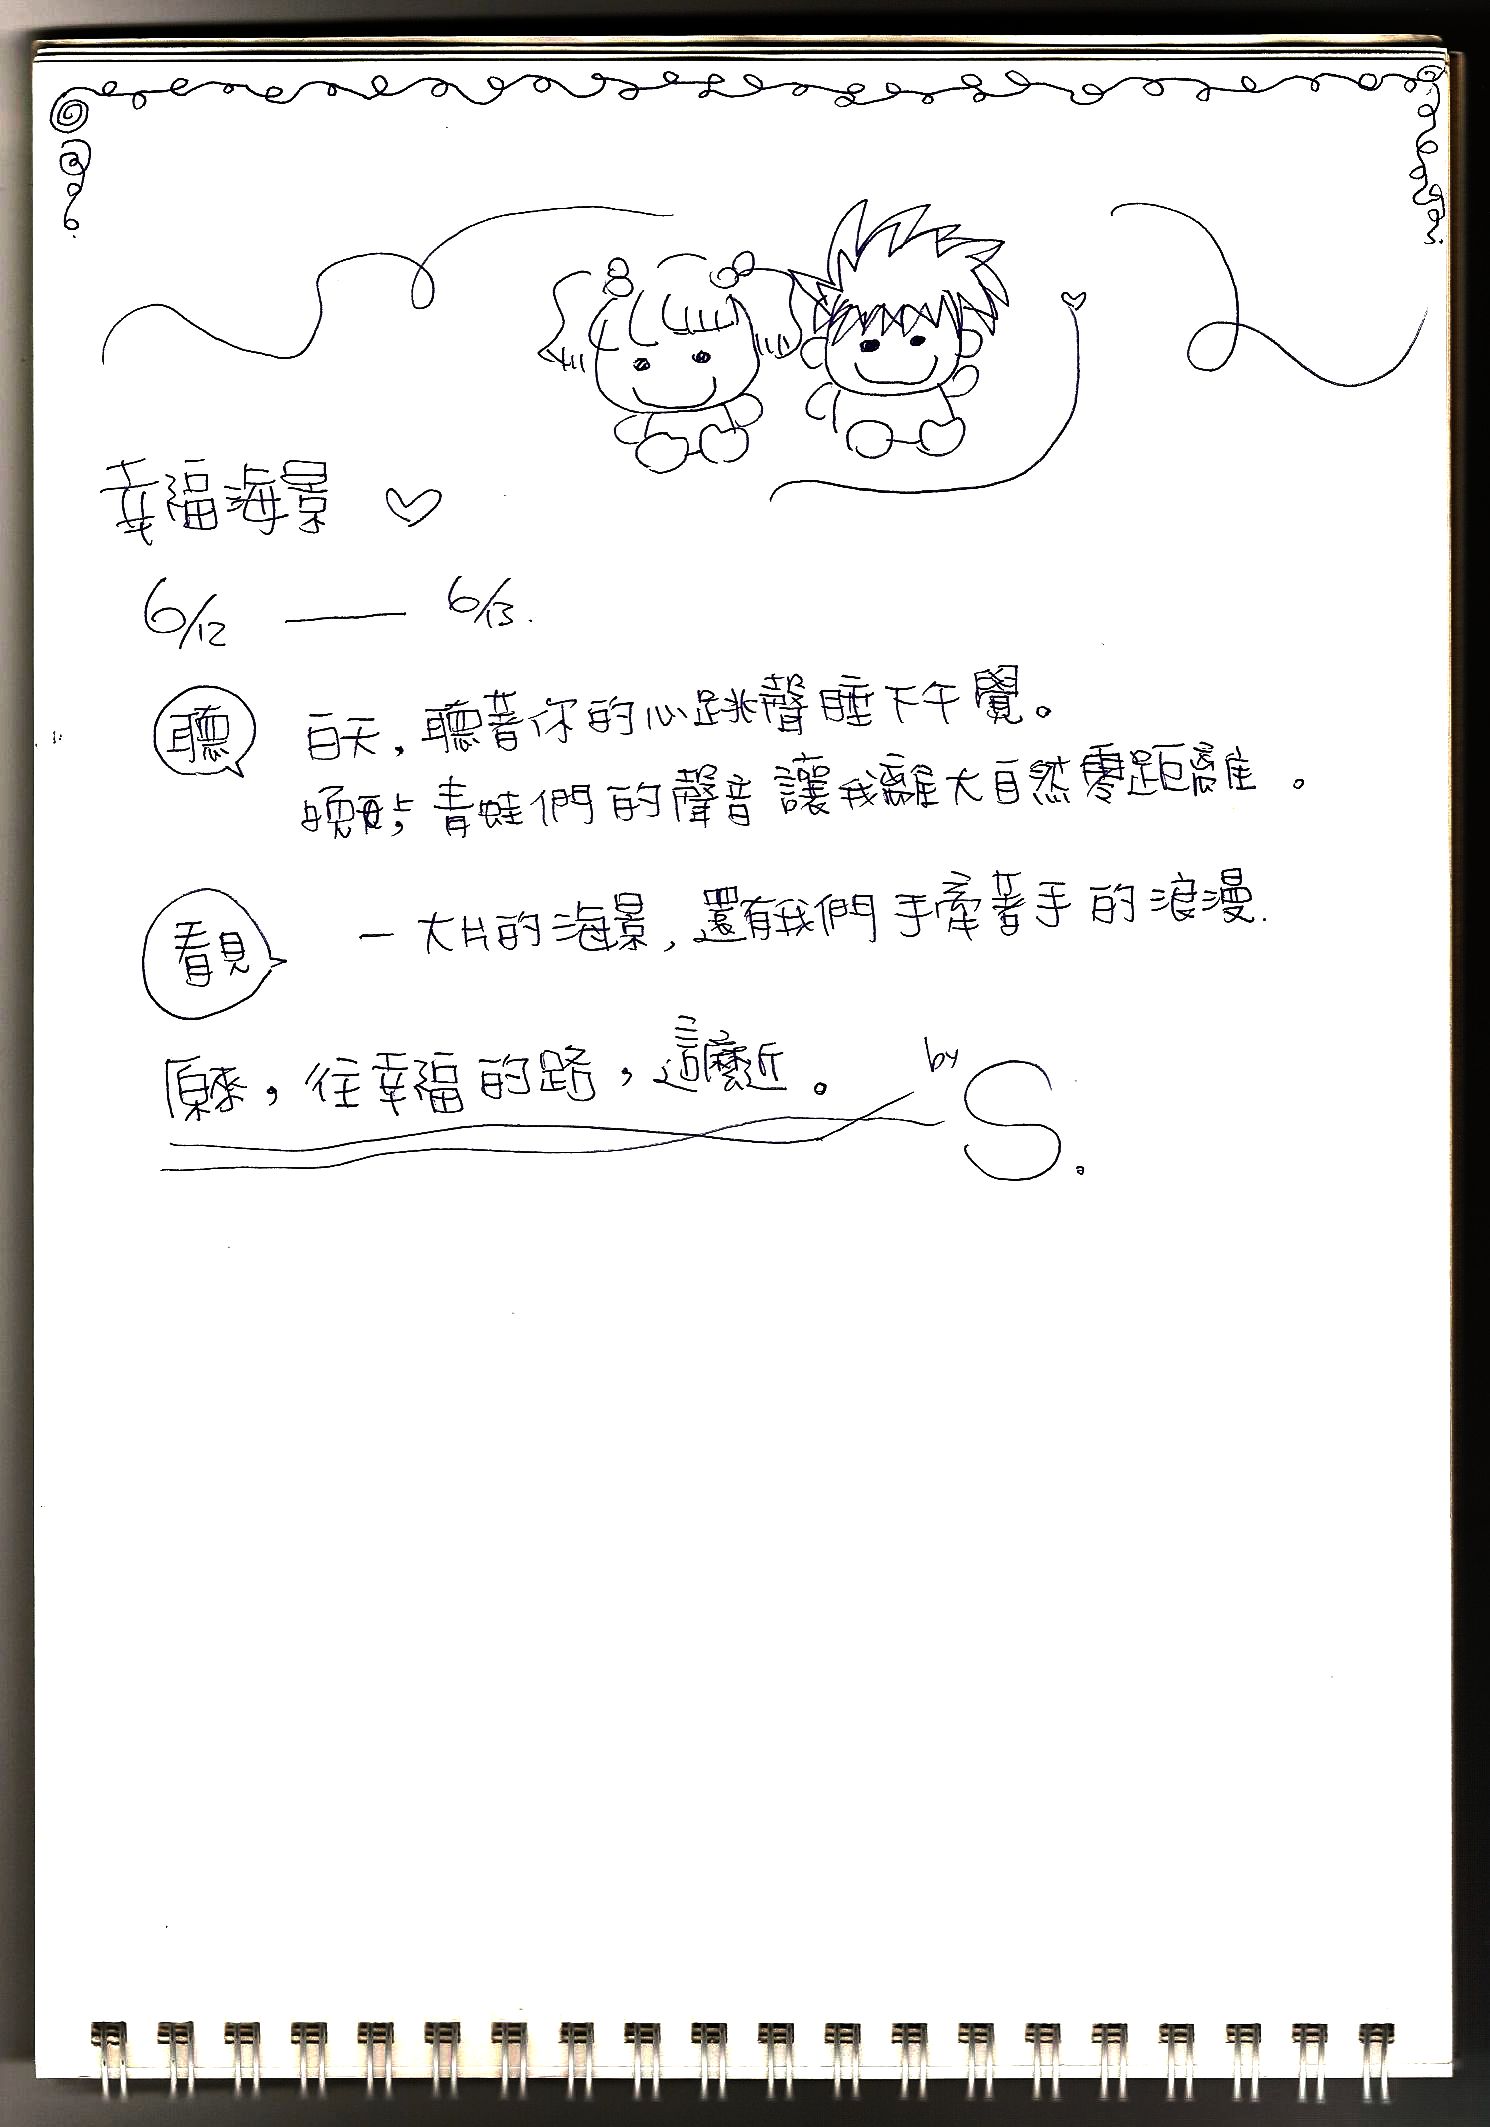 幸福海景 ♡
6/12 — 6/13.
聽 白天,聽著你的心跳聲睡下午覺。
晚點,青蛙們的聲音讓我離大自然零距離。
看見 一大片的海景,還有我們手牽著手的浪漫.
原來,往幸福的路,這麼近。 by S.